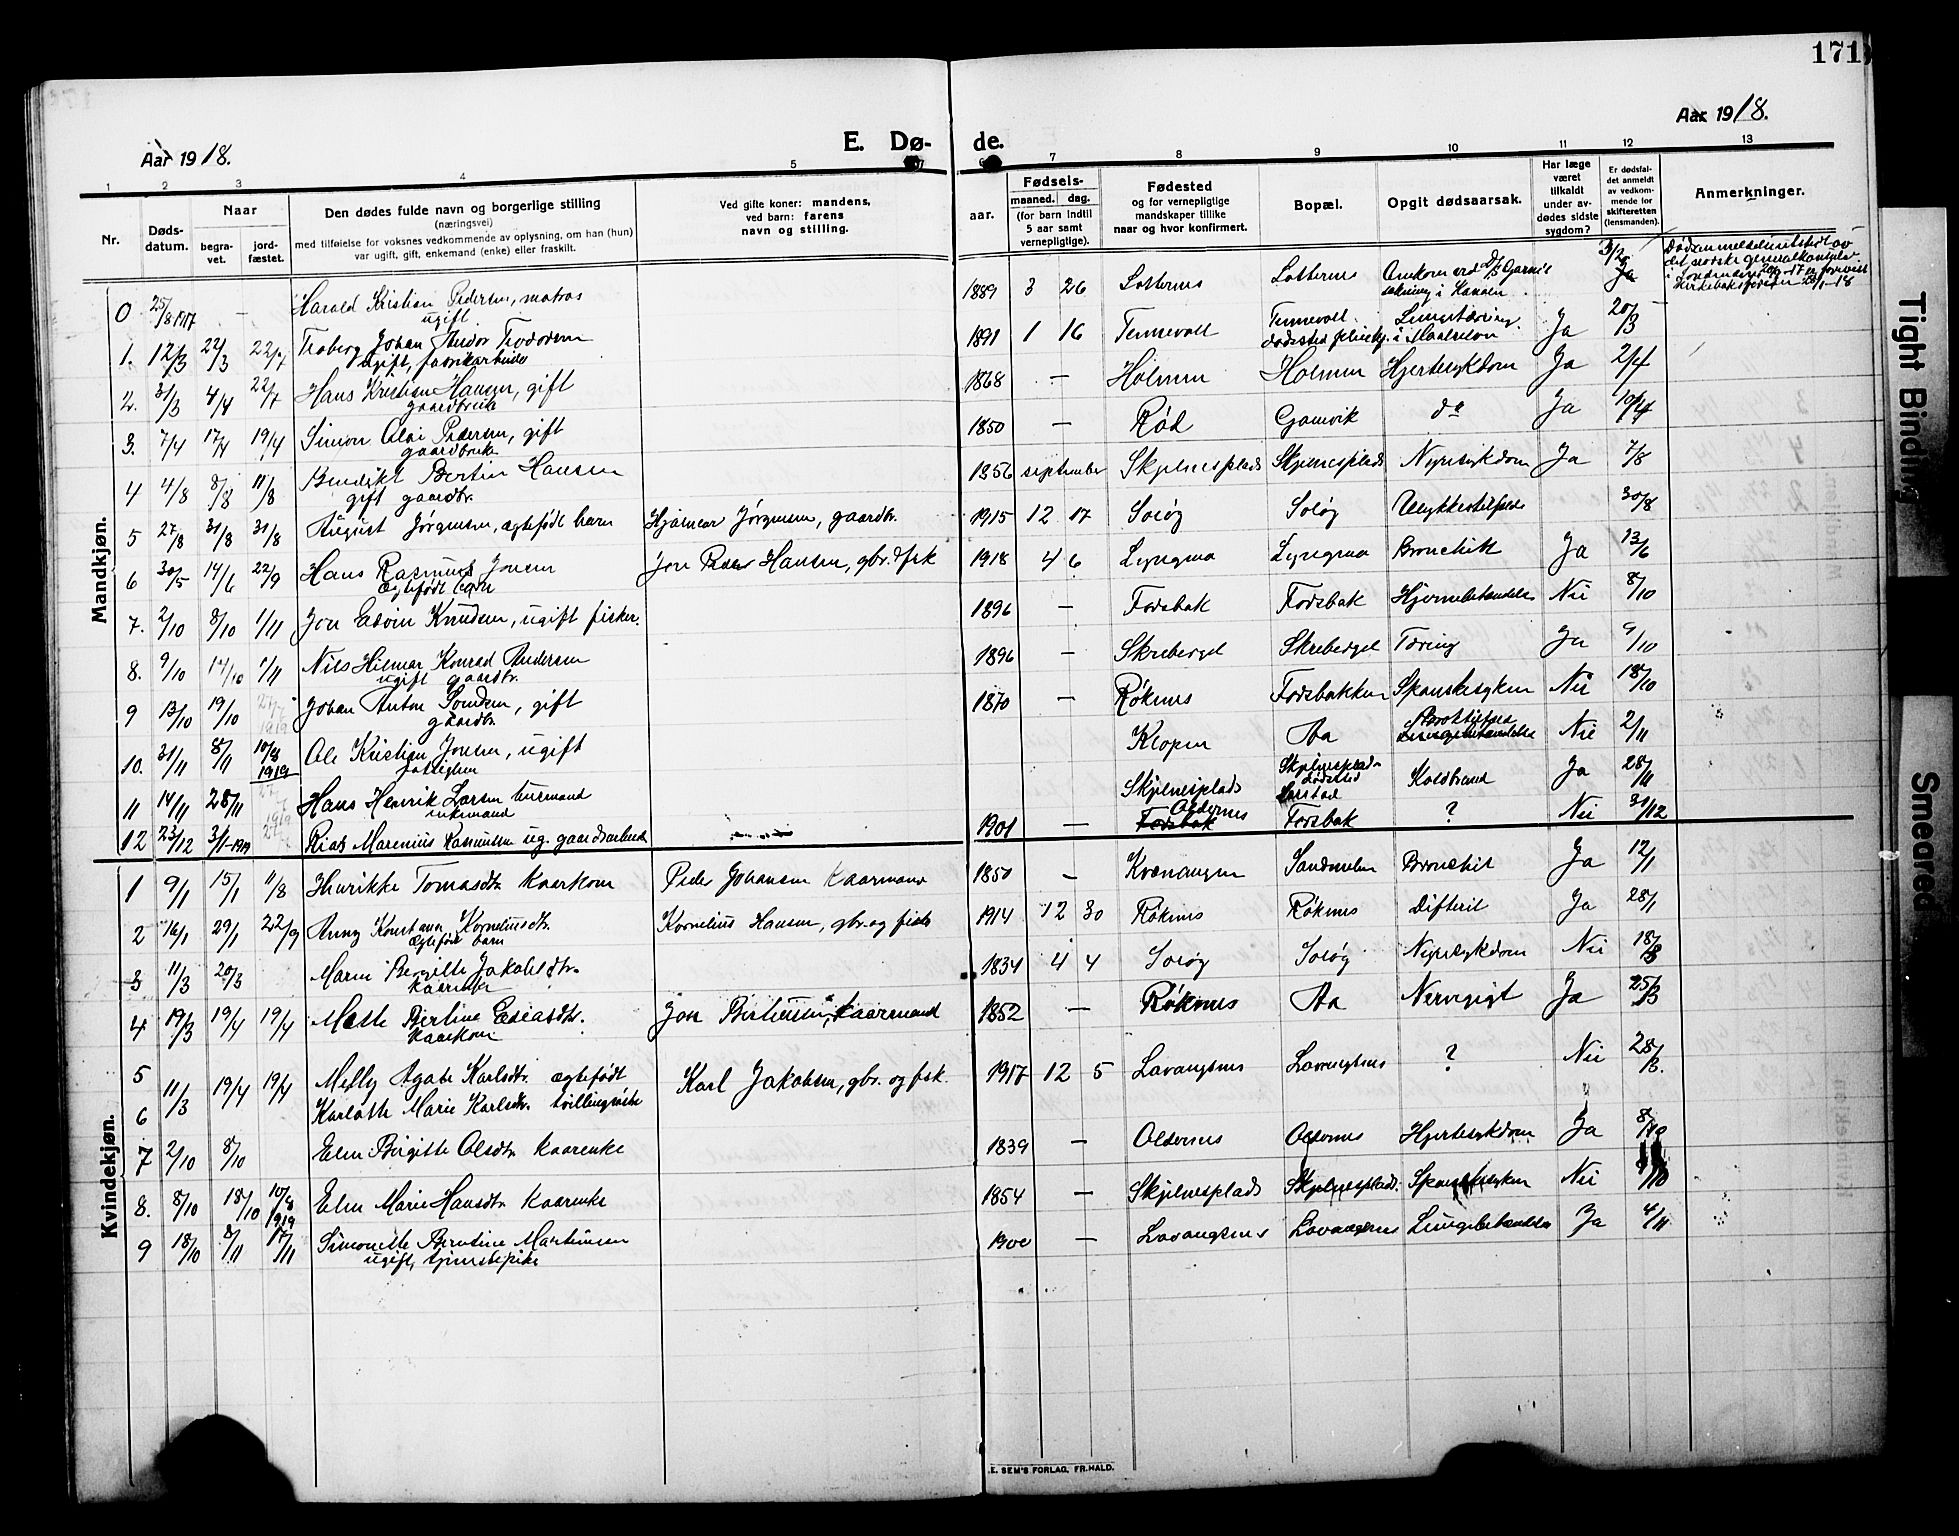 171
Aar 1918.
E. Dø-
de.
Aar 1918.
1 2 3 4 5 6 7 8 9 10 11 12 13
Nr.
Døds-
datum.
Naar
begra-
vet.
jord-
fæstet.
Den dødes fulde navn og borgerlige stilling
(næringsvei)
med tilføielse for voksnes vedkommende av oplysning, om han (hun)
var ugift, gift, enkemand (enke) eller fraskilt.
Ved gifte koner: mandens,
ved barn: farens
navn og stilling.
Fødsels-
aar.
maaned. dag.
(for barn indtil
5 aar samt
vernepligtige).
Fødested
og for vernepligtige
mandskaper tillike
naar og hvor konfirmert.
Bopæl.
Opgit dødsaarsak.
Har læge
været
tilkaldt
under av-
dødes sidste
sygdom?
Er dødsfal-
det anmeldt
av vedkom-
mende for
skifteretten
(lensmanden).
Anmerkninger.
Mandkjøn.
0 25/8 1917 - Harald Kristian Pedersen, matros
ugift
1889 3 26 Ja
1. 12/3 22/3 22/7 Johan
ugift, fabrikarbeider
1891 1 16 Tennevoll Tennevoll Ja 20/3
2. 31/3 4/4 22/7 Hans Kristian Hansen, gift
gaardbruker
1868 — Holmen Holmen Hjertesykdom Ja 2/4
3. 7/4 17/4 19/4 Simon Pedersen, gift
gaardbruker
1850 — Rød Gamvik do Ja 10/4
4 4/8 8/8 11/8 Bendikt Bertin Hansen
gift gaardbr.
1856 september Skjelnesplads Skjelnesplads Nyresykdom Ja 7/8
5 27/8 31/8 31/8 August Jørgensen, egtefødt barn Hjalmar Jørgensen, gaardbr.
1915 12 17 Soløy Soløy Ulykkestilfælde 30/8
6 30/5 14/6 22/9 Hans Rasmus Jonsen Jon Peder Hansen, gbr. & fisk
Egtefødt barn
1918 4 6 Bronchit Ja 13/6
7. 2/10 8/10 1/11 Jon Edvin Knudsen, ugift fisker.
1896 — Fossbak Fossbak Hjernebetændelse Nei 8/10
8. 9/10 14/10 1/11 Nils Hilmar Konrad Andersen
ugift gaardbr.
1896 — Tæring Ja 9/10
9 13/10 19/10 Johan Anton, gift
gaardbr.
1870 — Røknes Fossbakken Spanskesyken Nei 18/10
10. 31/11 8/11 10/8 Ole Kristian Jonsen, ugift
1919
Klopen Aa Nei 2/11
11 14/11 28/11 Hans Henrik Larsen
enkemand
Skjelnesplads Koldbrand Ja 28/11
12 23/12 3/1-1919 Marenius Rasmussen ug. gaardsarbeider
1901 — Fossbak Fossbak ? Nei 31/12
Kvindekjøn.
1 9/1 15/1 11/8 Henrikke Tomasdtr. kaarkone Peder Johansen kaarmand
1850 — Kvænangen Bronchit Ja 12/1
2 16/1 29/1 22/9 Anny Konstanse Korneliusdtr. Kornelius Hansen, gbr. og fisker
egtefødt barn
1914 12 30 Røknes Røknes Difterit Ja 28/1
3 11/3 20/3 Maren Bergitte Jakobsdtr.
kaarenke
1834 4 4 Soløy Soløy Nyresykdom Nei 18/3
4 19/3 19/4 19/4 Mette Bertine Esaiasdtr. Jon Bertinsen, kaarmand
kaarkone
1852 — Røknes Aa Nervegigt Ja 25/3
5 11/3 19/4 19/4 Melly Agate Karlsdtr. egtefødt Karl Jakobsen, gbr. og fisk.
6 Karlotte Marie Karlsdtr. tvillingsøstre
1917 12 5 Lavangsnes Lavangsnes ? Nei 28/3.
7 2/10 8/10 Elen Birgitte Olsdtr. kaarenke
1839 — Oldernes Oldernes Hjertesykdom Ja 8/10
8. 8/10 18/10 10/8 Elen Marie Hansdtr. kaarenke
1919
1854 — Skjelnesplads Skjelnesplads. Spanskesyken Nei
9 18/10 8/11 17/11 Simonette Berntine Martinsen
ugift, tjenestepike
1900 — Lavangsnes Lavangsnes Lungebetændelse Ja 4/11
E. SEM'S FORLAG, FR.HALD.
Tight Binding
Smeared